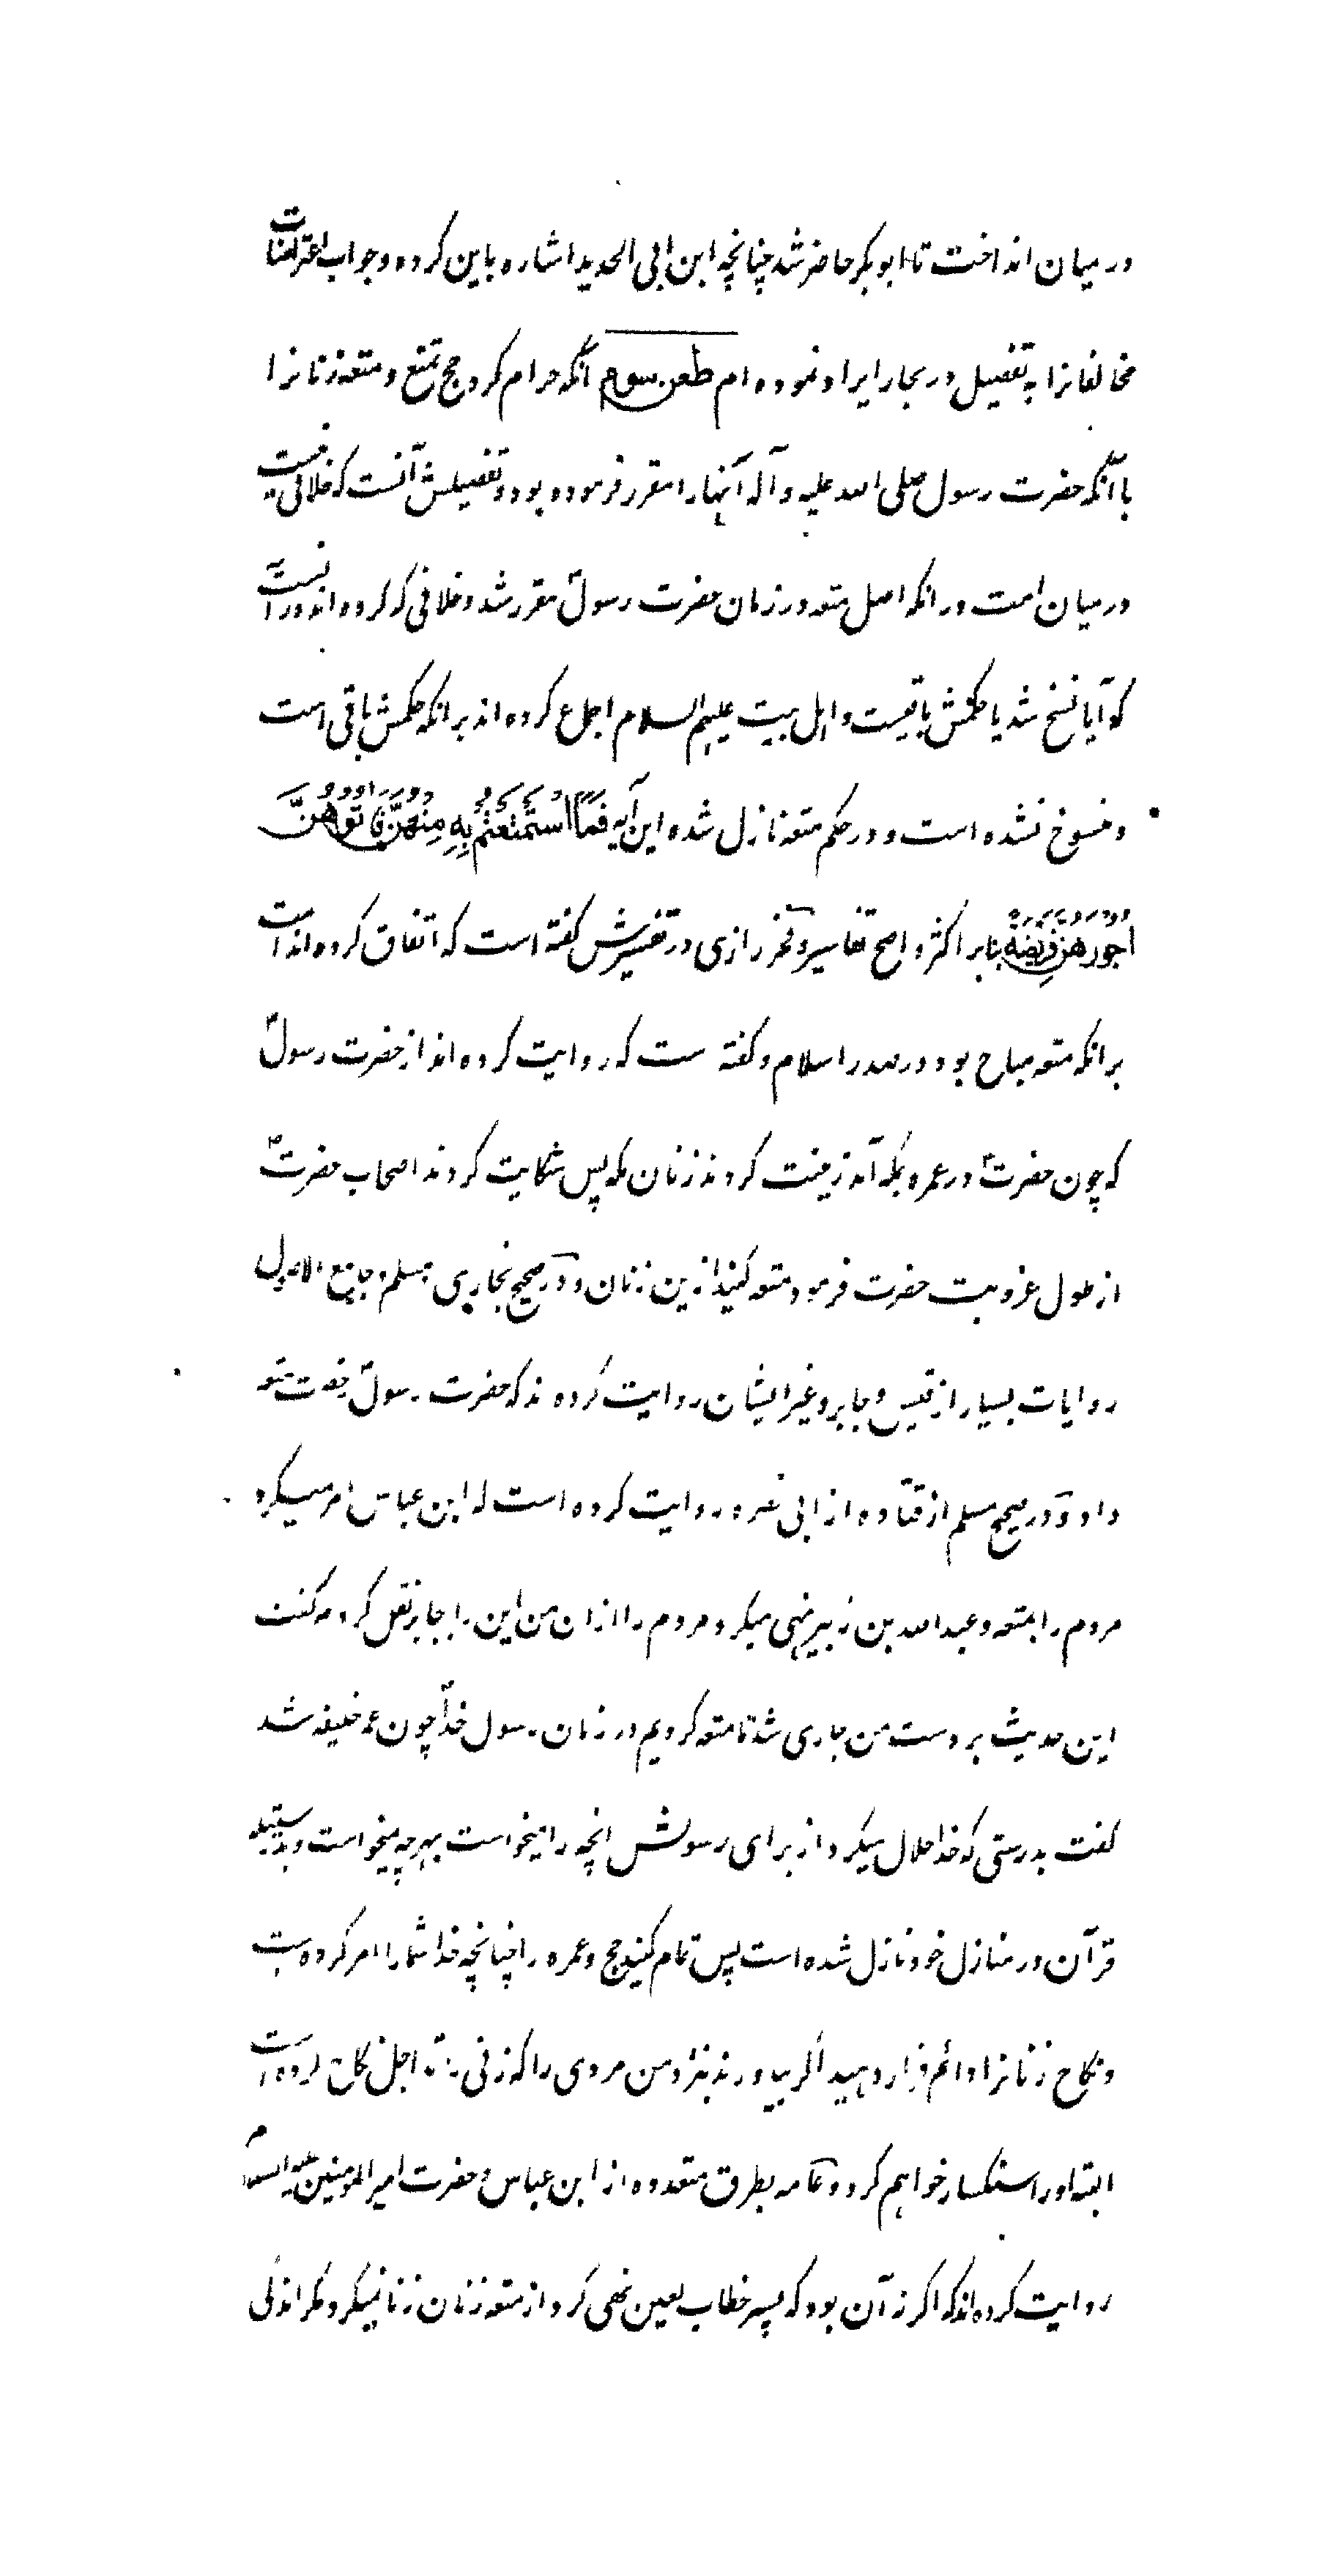 در میان انداخت تا ابو بکر حاضر شد چنانچه ابن ابی الحدید اشاره باین کرده و جواب اعتراضات
مخالفانرا به تفصیل در بحار ایراد نموده ام طعن سوم آنکه حرام کرد حج تمتع و متعه زنانرا
با آنکه حضرت رسول صلی الله علیه و آله آنها را مقرر فرموده بود و تفصیلش آنست که خلافی نیست
در میان امت در انکه اصل متعه در زمان حضرت رسولؐ مقرر شد و خلافی که کرده اند در آنست
که آیا نسخ شد یا حکمش باقیست و اهل بیت علیهم السلام اجماع کرده اند بر انکه حکمش باقی است
و منسوخ نشده است و در حکم متعه نازل شده این آیه فَمَا اسْتَمْتَعْتُمْ بِهِ مِنْهُنَّ فَاتُوهُنَّ
اُجُورَهُنَّ فَرِیضَةً بنابر اکثر و اصح تفاسیر و فخر رازی در تفسیرش گفته است که اتفاق کرده اند امت
بر انکه متعه مباح بود در صدر اسلام و گفته ست که روایت کرده اند از حضرت رسولؐ
که چون حضرتؐ در عمره بمکه آمد زینت کردند زنان مکه پس شکایت کردند اصحاب حضرتؐ
از طول عزوبت حضرت فرمود متعه کنید ازین زنان و در صحیح بخاری و مسلم و جامع الاصول
روایات بسیار از قیس و جابر و غیر ایشان روایت کرده ند که حضرت رسولؐ رخصت متعه
داد و در صحیح مسلم از قتاده از ابی نضره روایت کرده است که ابن عباس امر میکرد
مردم را بمتعه و عبدالله بن زبیر نهی میکرد مردم را ازان من این را بجابر نقل کردم گفت
این حدیث بر دست من جاری شد تا متعه کردیم در زمان رسول خداؐ چون عمر خلیفه شد
گفت بدرستی که خدا حلال میکرد از برای رسولش انچه را میخواست بهرچه میخواست و بدرستیکه
قرآن در منازل خود نازل شده است پس تمام کنید حج و عمره را چنانچه خدا شما را امر کرده است
و نکاح زنانرا دائم قرار دهید اگر بیاورند بنزد من مردی را که زنی را تا اجل نکاح کرده است
البته او را سنگسار خواهم کرد و عامه بطرق متعدده از ابن عباس و حضرت امیر المومنین علیه السلام
روایت کرده اند که اگر نه آن بود که پسر خطاب لعین نهی کرد از متعه زنان زنا نمیکرد مگر اندکی